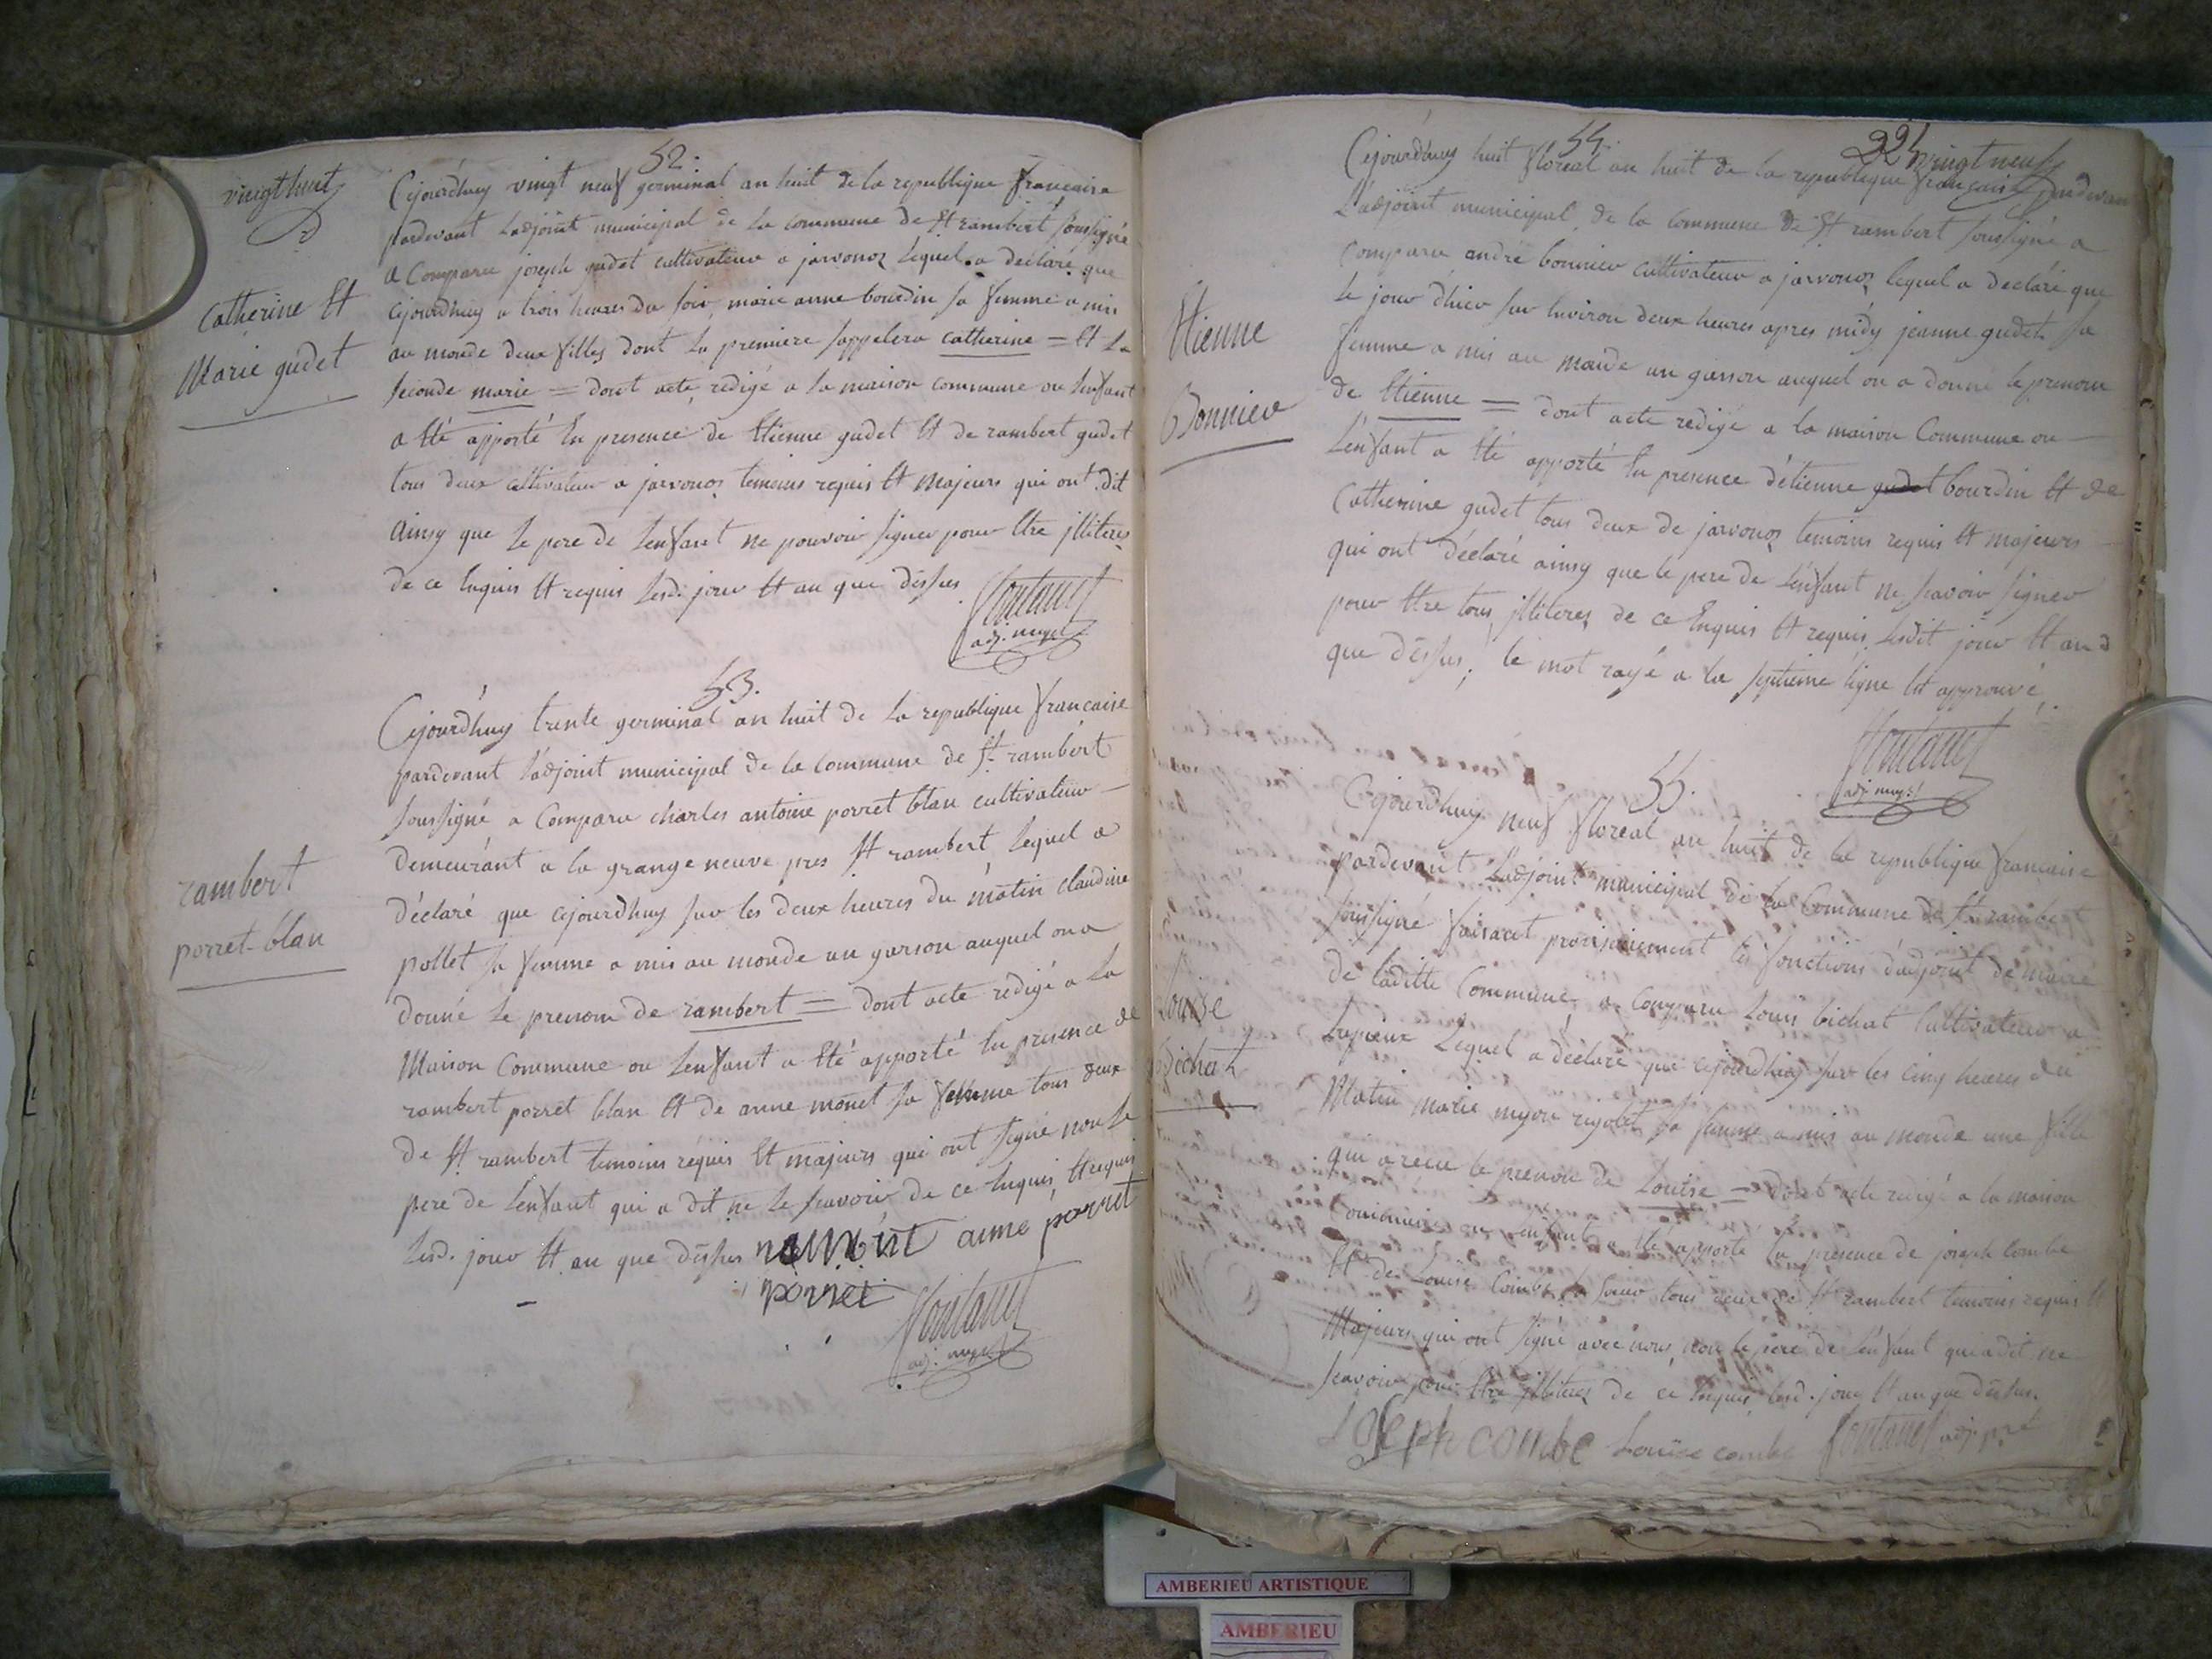 vingt huit
52.
Catherine Et
Marie gudet
Cejourdhuy vingt neuf germinal an huit de la republique francaise
pardevant Ladjoint municipal de la commune de St rambert soussigné
a Comparu joseph gudet cultivateur a javornoz Lequel a declaré que
cejourdhuy a trois heures du soir, marie anne bourdin sa femme a mis
au monde deux filles dont la premiere sappelera catherine = Et La
seconde marie = dont acte, redigé a la maison commune ou Lenfant
a Eté apporté En presence de Etienne gudet Et de rambert gudet
tous deux cultivateur a javornoz temoins requis Et majeurs qui ont dit
ainsy que Le pere de Lenfant ne pouvoir signer pour Etre jlliteres
de ce Enquis Et requis Lesd. jour Et an que dessus
adj. mupl
53.
rambert
porret-blan
Cejourdhuy trente germinal an huit de la republique francaise
pardevant L'adjoint municipal de la commune de St rambert
soussigné a Comparu charles antoine porret blan cultivateur
demeurant a la grange neuve pres St rambert, Lequel a
déclaré que cejourdhuy sur les deux heures du matin claudine
pollet sa femme a mis au monde un garson auquel on a
donné Le prenom de rambert = dont acte redigé a La
Maison Commune ou Lenfant a Eté apporté En presence de
rambert porret blan Et de anne monet sa femme tous deux
de St rambert temoins requis Et majeurs qui ont signé non Le
pere de Lenfant qui a dit ne Le scavoir de ce Enquis Et requis
Lesd. jour Et an que dessus
porret
porret
54.
vingt neuf
Etienne
Bonnier
Cejourdhuy huit floreal an huit de la republique francaise pardevant
L'adjoint municipal de la commune de St rambert soussigné a
comparu andré bonnier cultivateur a javornoz lequel a declaré que
le jour d'hier sur Environ deux heures apres midy jeanne gudet sa
femme a mis au monde un garson auquel on a donné le prenom
de Etienne = dont acte redigé a la maison Commune ou
L'enfant a Eté apporté En presence d'etienne gudet bourdin Et de
Catherine gudet tous deux de javornoz temoins requis Et majeurs
qui ont déclaré ainsy que le pere de L'enfant ne scavoir signer
pour Etre tous jlliteres de ce Enquis Et requis Lesdit jour Et an
que dessus; le mot rayé a la septieme ligne Est approuvé
55.
Louise
bichat
Cejourdhuy neuf floreal an huit de la republique francaise
pardevant L'adjoint municipal de la Commune de St rambert
soussigné faisant provisoirement les fonctions d'adjoint de maire
de laditte Commune a Comparu Louis bichat Cultivateur a
Lequel a déclaré que cejourdhuy sur les cinq heures du
Matin marie rigolet sa femme a mis au monde une fille
qui a recu le prenom de Louise = dont acte redigé a la maison
Commune ou Lenfant a Eté apporté En presence de joseph combe
Et de Louise Combe sa soeur tous deux de St rambert temoins requis Et
Majeurs qui ont signé avec nous, non le pere de L'enfant qui a dit ne
scavoir pour Etre jlliteres de ce Enquis Lesd. jour Et an que dessus.
Joseph combe Louise combe
AMBERIEU ARTISTIQUE
AMBERIEU